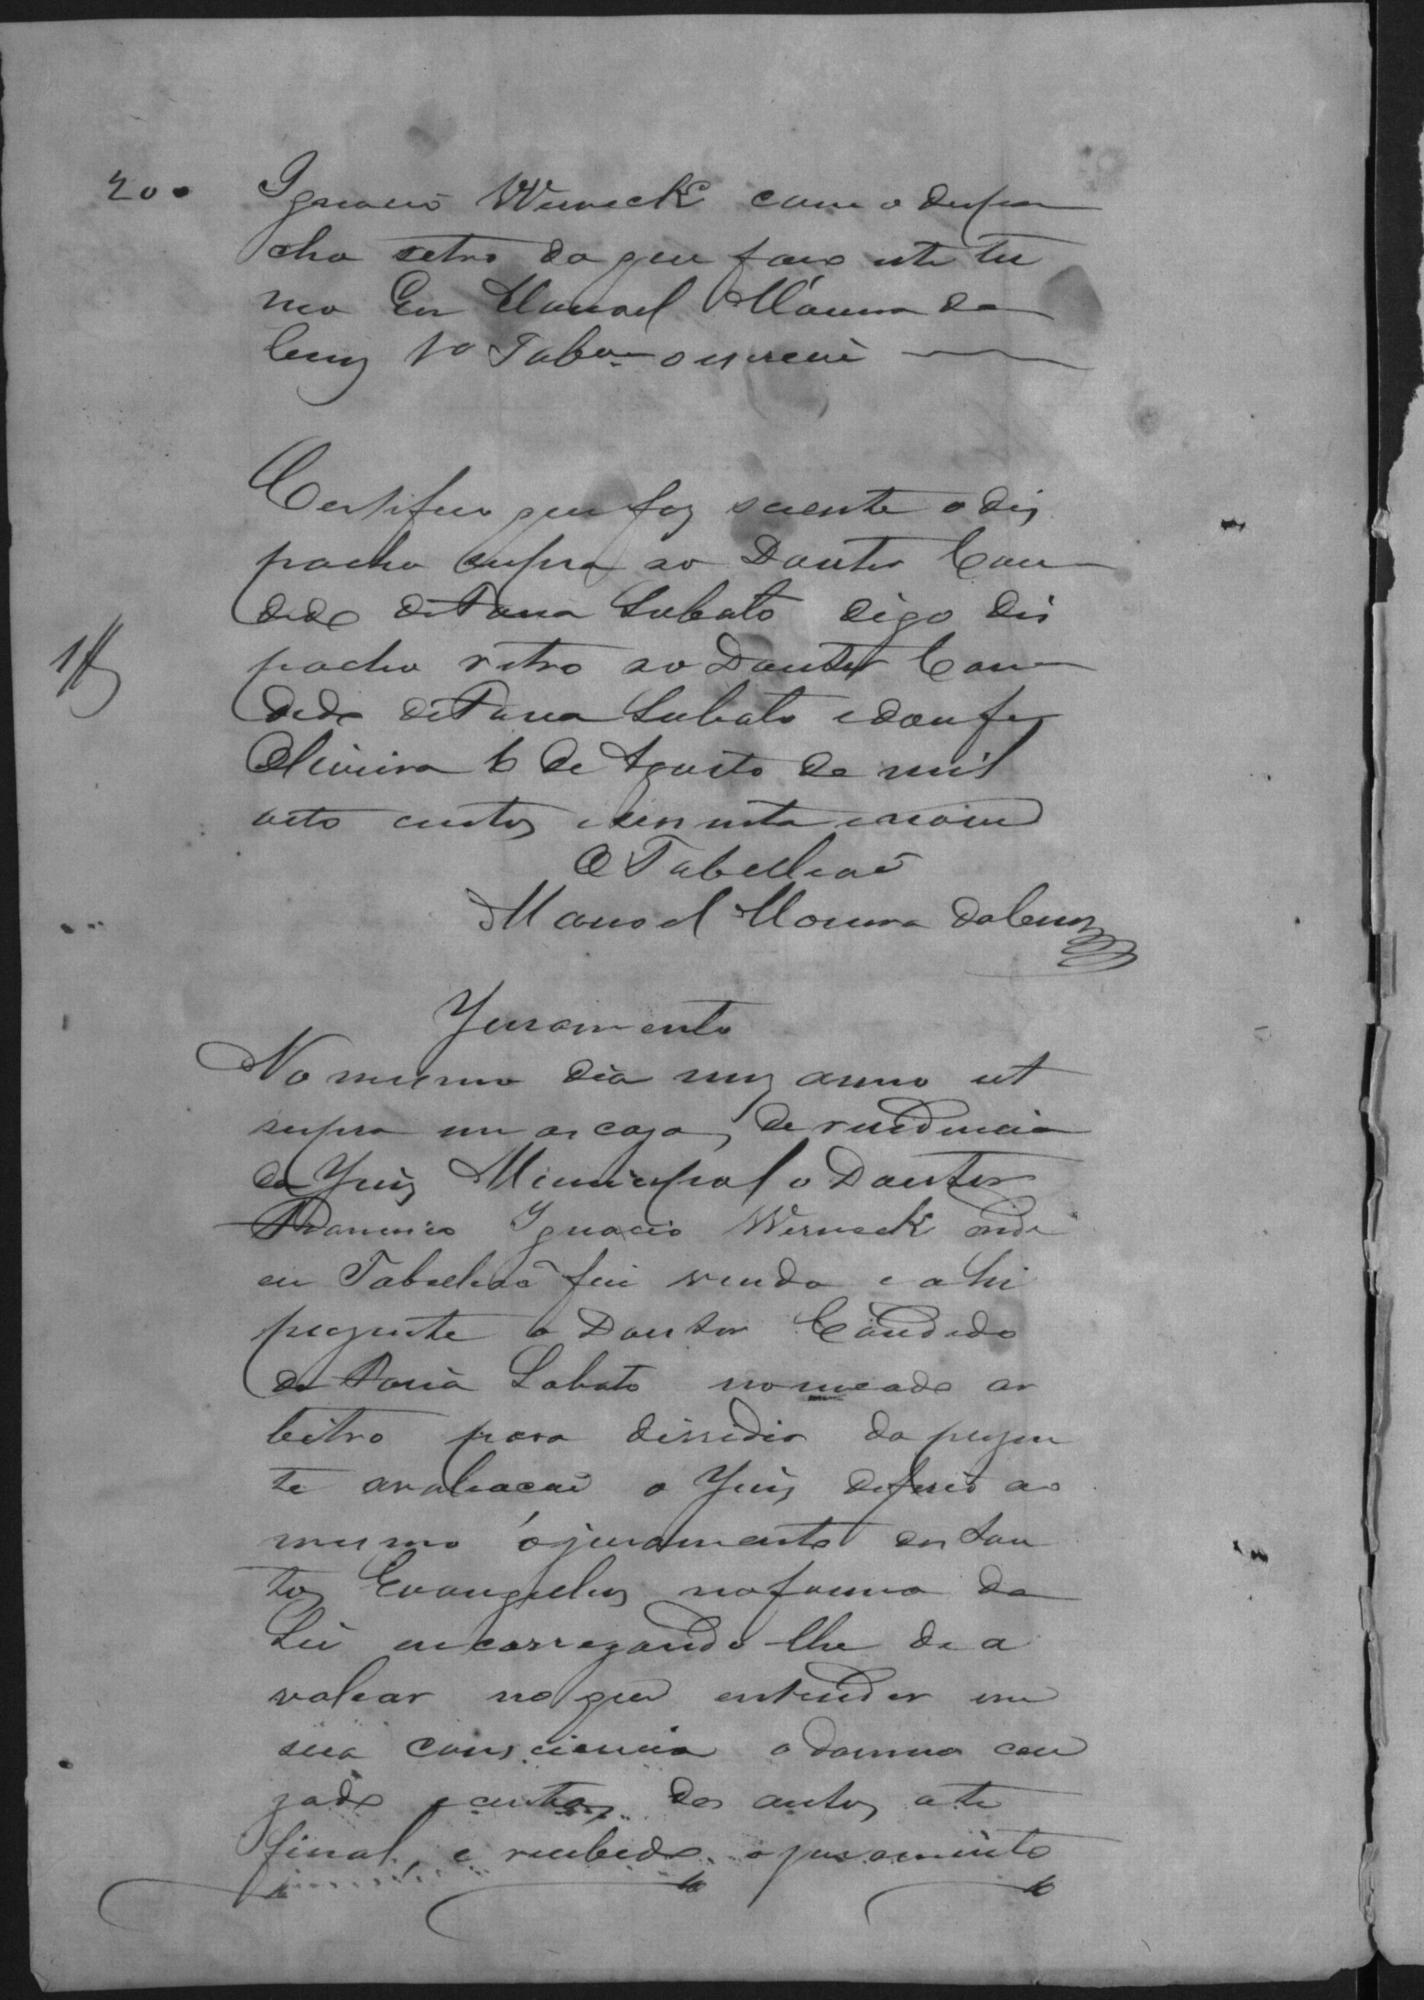 200
Ignacio Werneck com o despa
cho retro do que faço este ter
mo Eu Manoel Moura da
Cruz 1º Tabam o escrevi
Certifico que fiz sciente o dis
pacho supra ao Doutor Can
dido de Faria Lobato digo dis
pacho retro ao Doutor Can
dido de Faria Lobato e dou fé
Oliveira 6 de Agosto de mil
oito centos e sessenta e nove
O Tabelliaõ
Manoel Moura da Cruz
Juramento
No mesmo dia mez anno ut
supra em as cazas de residencia
do Juiz Municipal o Doutor
Francisco Ignacio Werneck onde
eu Tabelliaõ fui vindo e ahi
prezente o Doutor Candido
de Faria Lobato nomeado ar
bitro para dissidir da prezen
te avaliacaõ o Juiz deferio ao
mesmo o juramento dos San
tos Evangelhos na forma da
Lei encarregando lhe de a
valiar no que entender em
sua consciencia o damno cau
zado e custas dos autos ate
final, e recebido o juramento